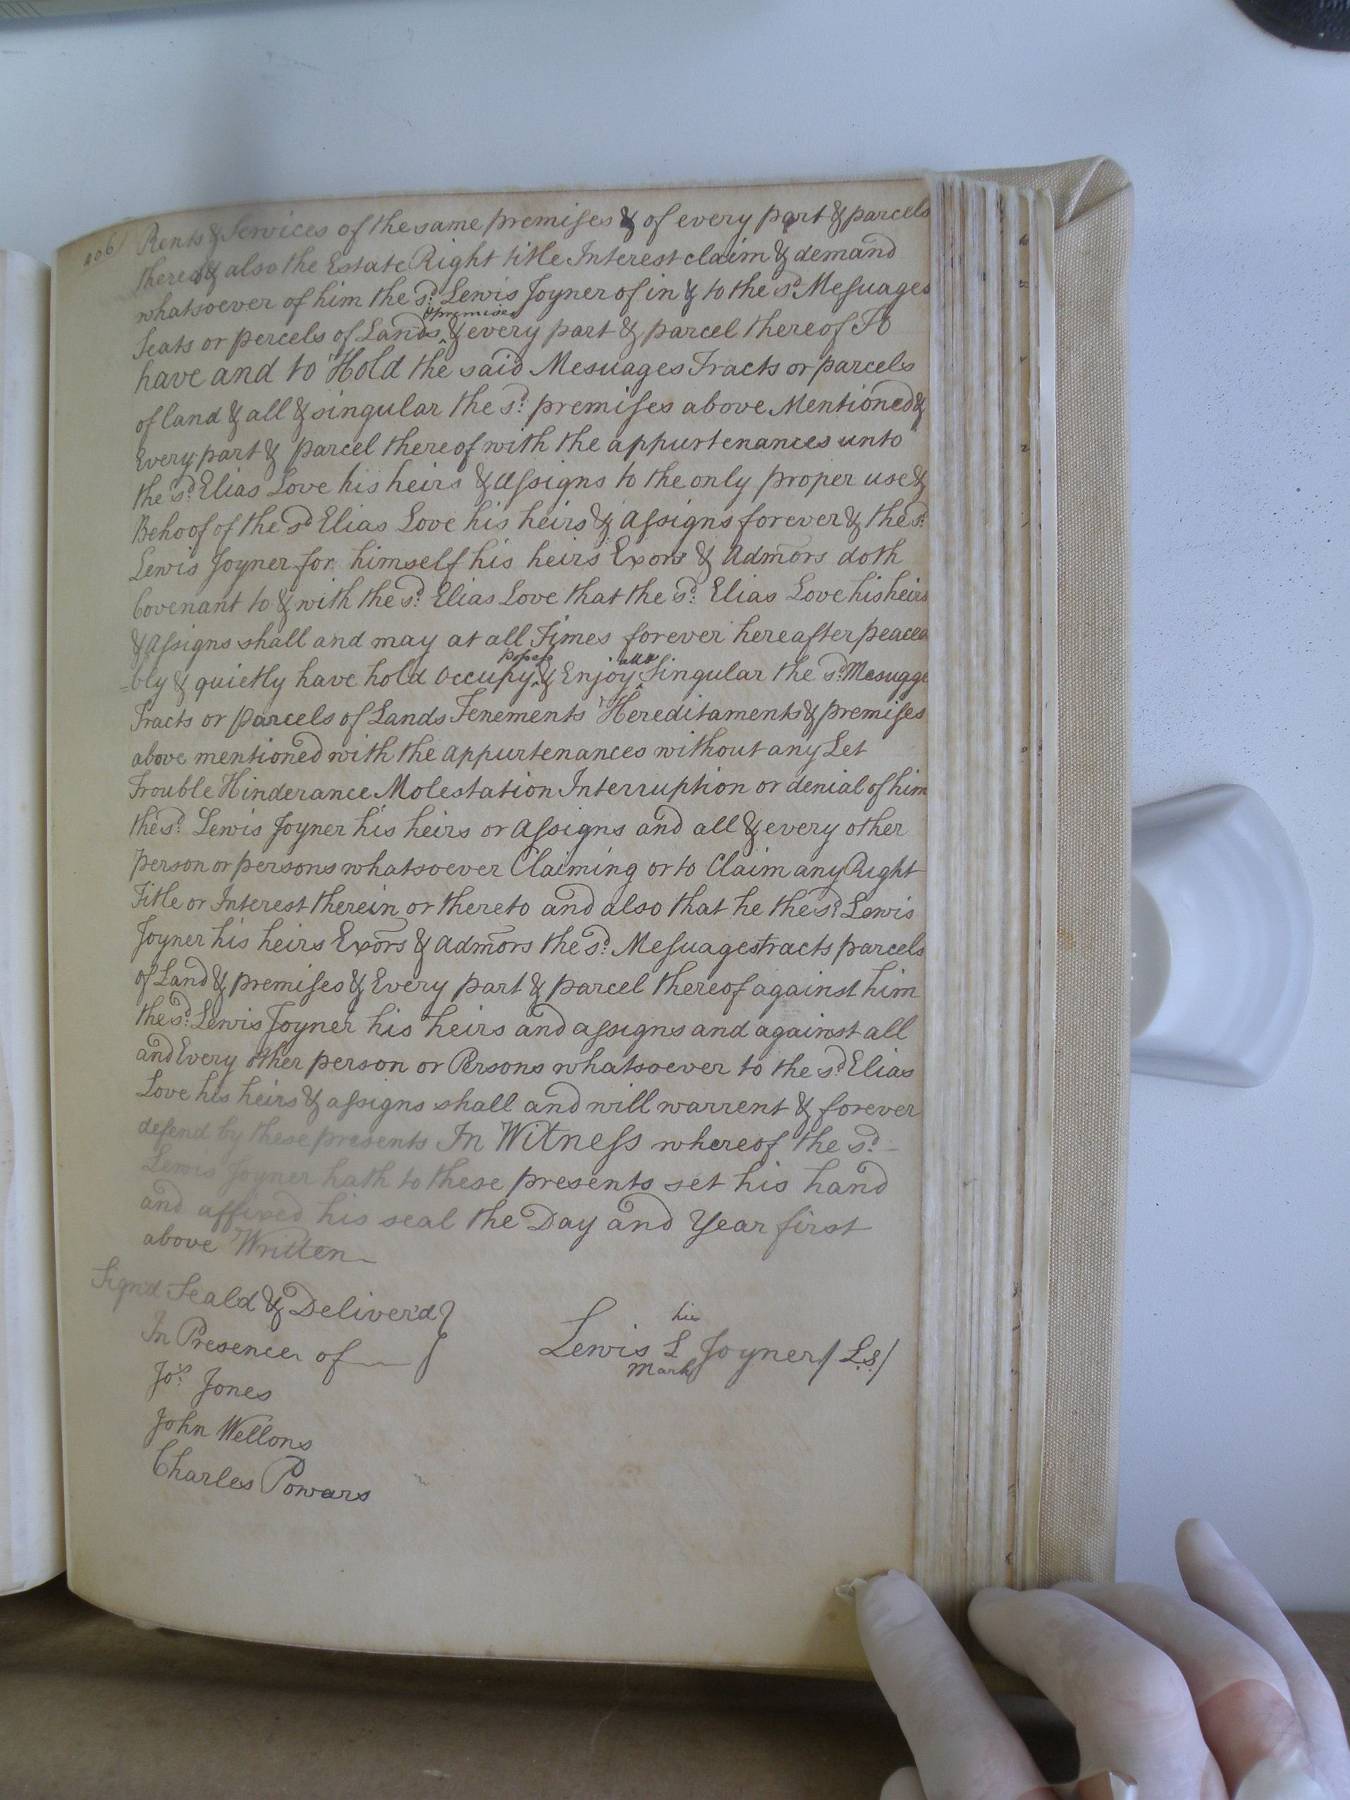 406
Rents & Services of the same premises & of every part & parcels
thereof & also the Estate Right title Interest claim & demand
whatsoever of him the sd. Lewis Joyner of in & to the sd. Mesuages
& premises
Seats or percels of Lands ‸ & every part & parcel thereof To
have and to Hold the said Mesuages Tracts or parcels
of land & all & singular the sd. premises above Mentioned &
Every part & parcel thereof with the appurtenances unto
the sd. Elias Love his heirs & assigns to the only proper use &
Behoof of the sd Elias Love his heirs & assigns forever & the sd.
Lewis Joyner for himself his heirs Exors & Admors doth
Covenant to & with the sd. Elias Love that the sd. Elias Love his heirs
& assigns shall and may at all Times forever hereafter peacea
posess all &
=bly & quietly have hold occupy ‸ & Enjoy ‸ Singular the sd. Mesuage
Tracts or parcels of Lands Tenements Hereditaments & premises
above mentioned with the appurtenances without any Let
Trouble Hinderance Molestation Interruption or denial of him
the sd. Lewis Joyner his heirs or assigns and all & every other
person or persons whatsoever Claiming or to Claim any Right
Title or Interest therein or thereto and also that he the sd. Lewis
Joyner his heirs Exors & admors the sd. Mesuages tracts parcels
of Land & premises & Every part & parcel thereof against him
the sd. Lewis Joyner his heirs and assigns and against all
and Every other person or Persons whatsoever to the sd. Elias
Love his heirs & assigns shall and will warrent & forever
defend by these presents In Witness whereof the sd.
Lewis Joyner hath to these presents set his hand
and affixed his seal the Day and Year first
above Written
Sign'd Seald & Deliver'd }
In Presence of
his
Lewis L Joyner / L.S. /
Mark
Jos. Jones
John Wellons
Charles Powars